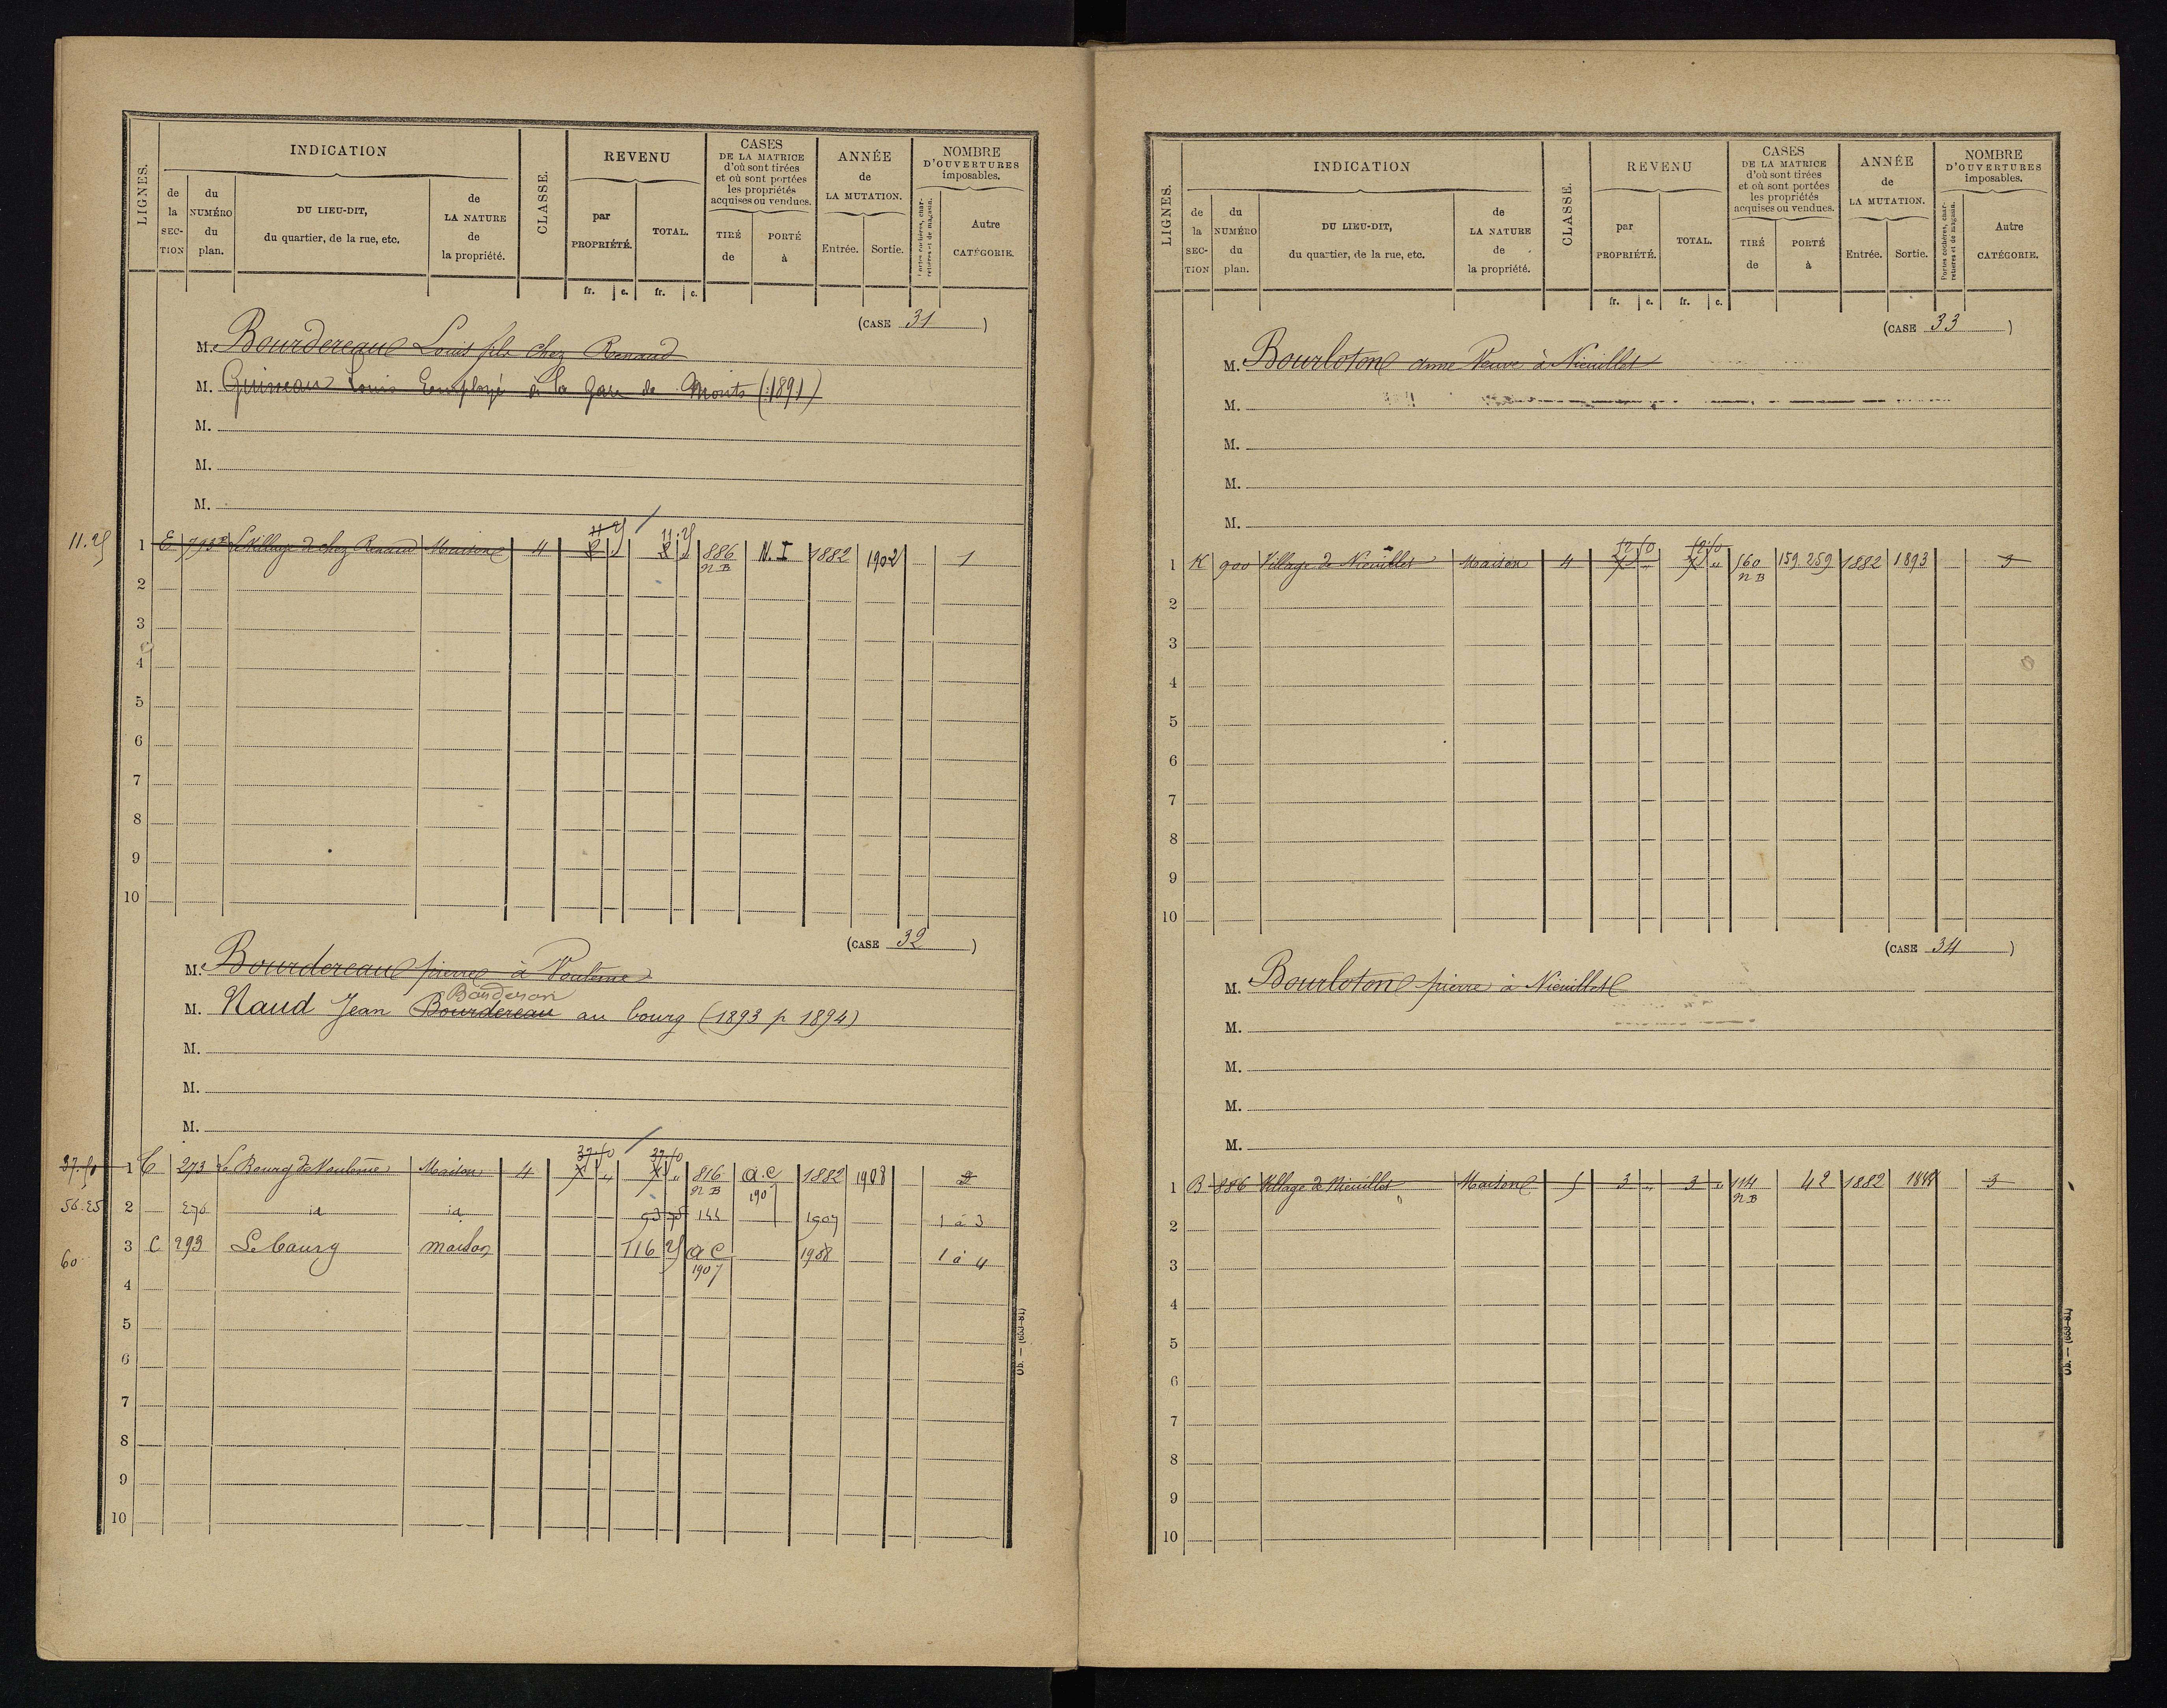 LIGNES.
INDICATION
de la SECTION
du NUMÉRO du plan.
DU LIEU-DIT, du quartier, de la rue, etc.
de LA NATURE de la propriété.
CLASSE.
REVENU
par PROPRIÉTÉ.
TOTAL.
fr. c. fr. c.
CASES DE LA MATRICE d'où sont tirées et où sont portées les propriétés acquises ou vendues.
TIRÉ de
PORTÉ à
ANNÉE de LA MUTATION.
Entrée. Sortie.
NOMBRE D'OUVERTURES imposables.
Portes cochères, charretières et de magasin.
Autre CATÉGORIE.
(CASE 31)
M. Bourdereau Louis fils chez Renaud
M. Guineau Louis Employé à la Gare de Monts (1891)
M.
M.
M.
11.25 1 E 793 Le Village de chez Renaud Maison 4 11 25 11.25 886 NB N.I 1882 1902 1
2
3
4
5
6
7
8
9
10
(CASE 32)
M. Bourdereau pierre à Vouleme
Bauderon
M. Naud Jean Bourdereau au bourg (1893 p 1894)
M.
M.
M.
37.50 1 C 273 Le Bourg de Vouleme Maison 4 37.50 37.50 816 NB a.c 1907 1882 1908
56.25 2 276 id id 93 75 144 1907 1 à 3
60 3 C 293 Le bourg maison 116 25 a c 1907 1908 1 à 4
4
5
6
7
8
9
10
Ob. — (663-81)
LIGNES.
INDICATION
de la SECTION
du NUMÉRO du plan.
DU LIEU-DIT, du quartier, de la rue, etc.
de LA NATURE de la propriété.
CLASSE.
REVENU
par PROPRIÉTÉ.
TOTAL.
fr. c. fr. c.
CASES DE LA MATRICE d'où sont tirées et où sont portées les propriétés acquises ou vendues.
TIRÉ de
PORTÉ à
ANNÉE de LA MUTATION.
Entrée. Sortie.
NOMBRE D'OUVERTURES imposables.
Portes cochères, charretières et de magasin.
Autre CATÉGORIE.
(CASE 33)
M. Bourloton anne Veuve à Nieuillet
M.
M.
M.
M.
1 K 900 Village de Nieuillet Maison 4 160 NB 159.259 1882 1893
2
3
4
5
6
7
8
9
10
(CASE 34)
M. Bourloton pierre à Nieuillet
M.
M.
M.
M.
1 B 886 Village de Nieuillet Maison 5 3 " 3 " 114 NB 42 1882 3
2
3
4
5
6
7
8
9
10
Ob. — (663-81)